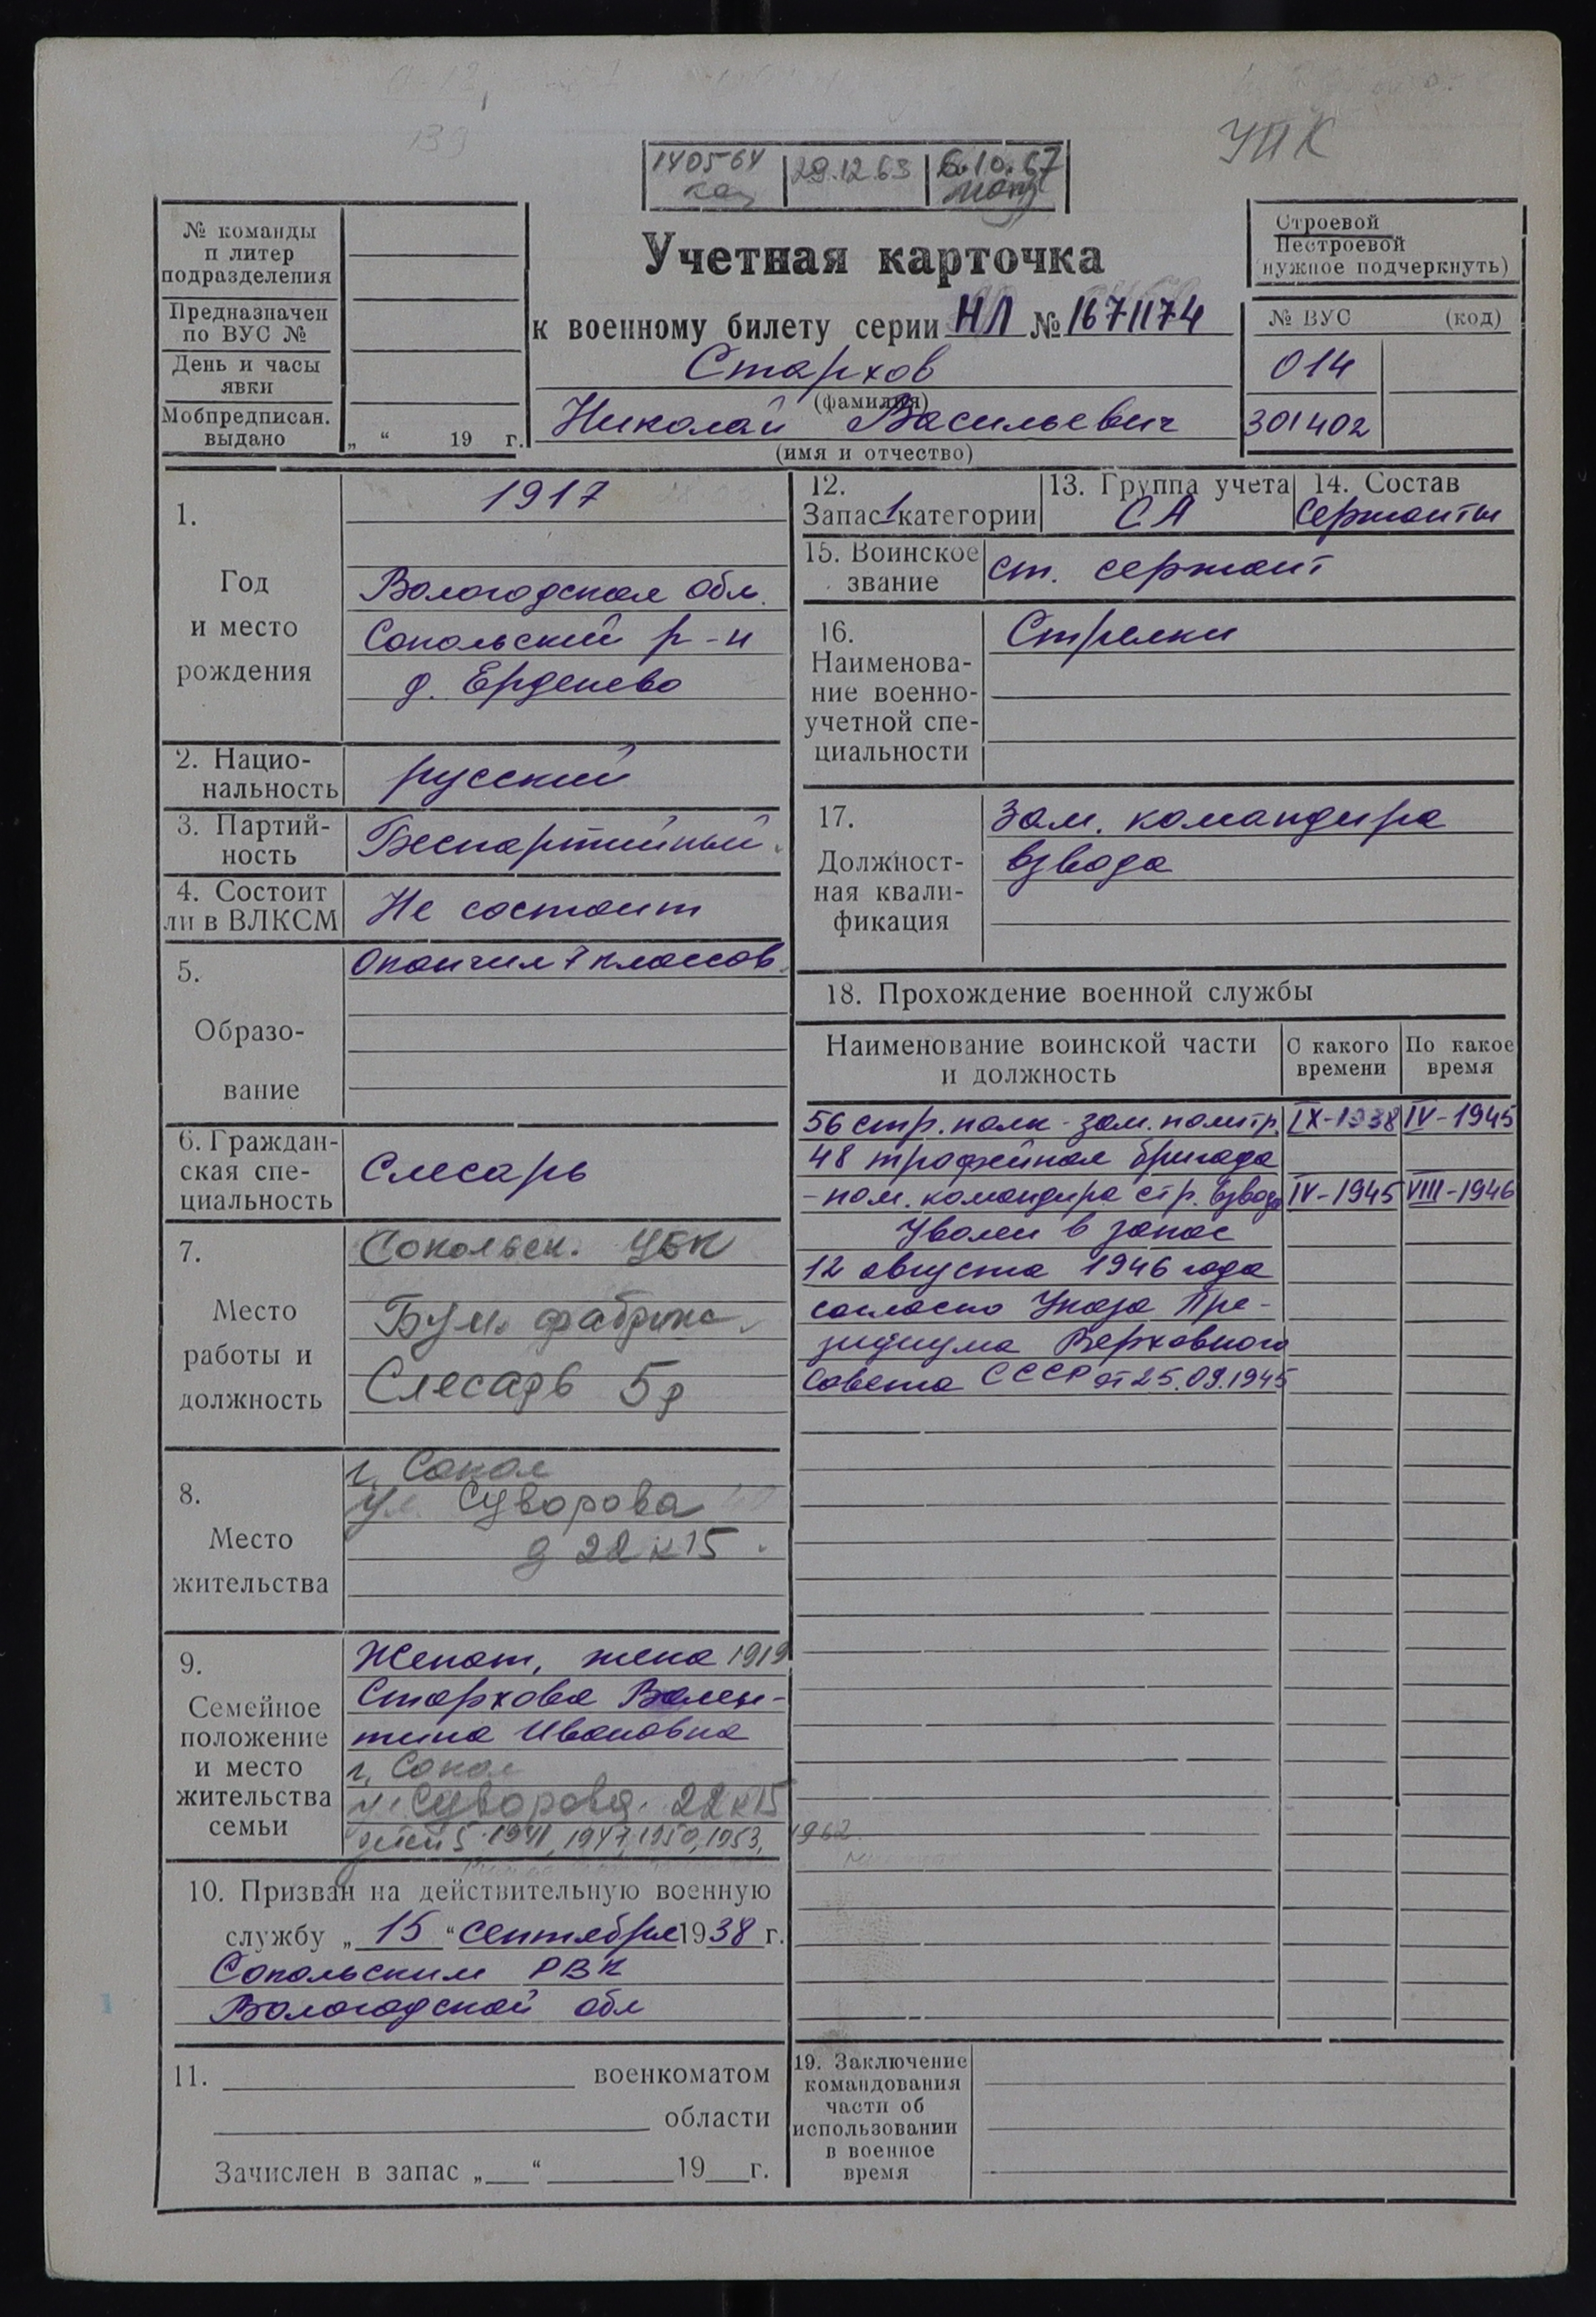 УПК
140564 29.12.63 6.10.67
№ команды
и литер
подразделения
Предназначен
по ВУС №
День и часы
явки
Мобпредписан.
выдано
„ “ 19 г.
Учетная карточка
к военному билету серии НЛ № 1671174
Стархов
(фамилия)
Николай Васильевич
(имя и отчество)
Строевой
Нестроевой
(нужное подчеркнуть)
№ ВУС (код)
014
301402
1.
Год
и место
рождения
1917
Вологодская обл.
Сокольский р-н
д. Ерденево
2. Нацио-
нальность
русский
3. Партий-
ность
Беспартийный.
4. Состоит
ли в ВЛКСМ
Не состоит
5.
Образо-
вание
Окончил 7 классов.
6. Граждан-
ская спе-
циальность
Слесарь
7.
Место
работы и
должность
Сокольск. ЦБК
Бум. фабрика.
Слесарь 5р
8.
Место
жительства
г. Сокол
ул. Суворова
д 22 к 15.
9.
Семейное
положение
и место
жительства
семьи
Женат, жена 1919
Стархова Вален-
тина Ивановна
г. Сокол
ул. Суворова. 22 к 15
детей 5. 1941, 1947, 1950, 1953, 1962.
10. Призван на действительную военную
службу „ 15 “ сентября 1938 г.
Сокольским РВК
Вологодской обл
11. военкоматом
области
Зачислен в запас „ “ 19 г.
12.
Запас 1 категории
13. Группа учета
СА
14. Состав
Сержанты
15. Воинское
звание
ст. сержант
16.
Наименова-
ние военно-
учетной спе-
циальности
Стрелки
17.
Должност-
ная квали-
фикация
Зам. командира
взвода
18. Прохождение военной службы
Наименование воинской части
и должность
С какого
времени
По какое
время
56 стр. полк - зам. политр. IX-1938 IV-1945
48 трофейная бригада
- пом. командира стр. взвода IV-1945 VIII-1946
Уволен в запас
12 августа 1946 года
согласно Указа Пре-
зидиума Верховного
Совета СССР от 25.09.1945
19. Заключение
командования
части об
использовании
в военное
время